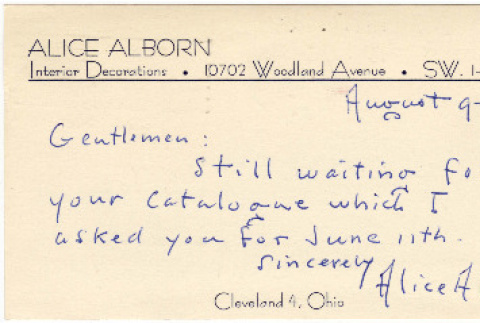 ALICE ALBORN
Interior Decorations • 10702 Woodland Avenue • SW. 1-
August 9-
Gentlemen:
Still waiting fo
your catalogue which I
asked you for June 11th.
Sincerely
Alice A
Cleveland 4, Ohio